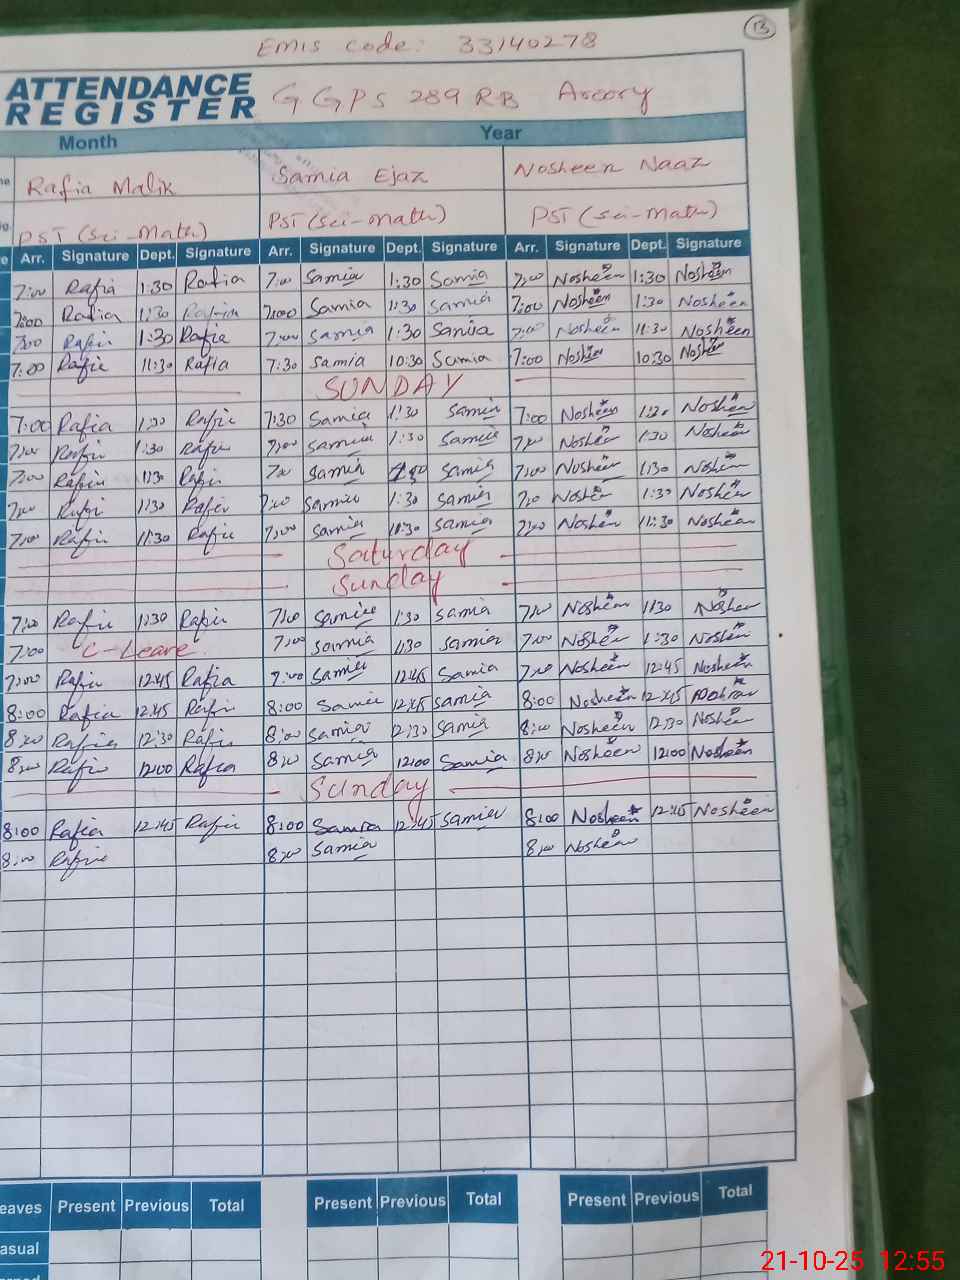 13
EMIS code: 33140278
ATTENDANCE
REGISTER
GGPS 289 RB Areory
Month Year
Rafia Malik Samia Ejaz Nosheen Naaz
PST (sci-math) PST (sci-math) PST (sci-math)
Arr. Signature Dept. Signature Arr. Signature Dept. Signature Arr. Signature Dept. Signature
7:00 Rafia 1:30 Rafia 7:00 Samia 1:30 Samia 7:00 Nosheen 1:30 Nosheen
7:00 Rafia 1:30 Rafia 7:00 Samia 1:30 Samia 7:00 Nosheen 1:30 Nosheen
7:00 Rafia 1:30 Rafia 7:00 Samia 1:30 Samia 7:00 Nosheen 11:30 Nosheen
7:00 Rafia 11:30 Rafia 7:30 Samia 10:30 Samia 7:00 Nosheen 10:30 Nosheen
SUNDAY
7:00 Rafia 1:30 Rafia 7:30 Samia 1:30 Samia 7:00 Nosheen 1:30 Nosheen
7:00 Rafia 1:30 Rafia 7:00 Samia 1:30 Samia 7:00 Nosheen 1:30 Nosheen
7:00 Rafia 1:30 Rafia 7:00 Samia Samia 7:00 Nosheen 1:30 Nosheen
7:00 Rafia 1:30 Rafia 7:00 Samia 1:30 Samia 7:00 Nosheen 1:30 Nosheen
7:00 Rafia 11:30 Rafia 7:00 Samia 11:30 Samia 7:00 Nosheen 11:30 Nosheen
Saturday
Sunday
7:00 Rafia 1:30 Rafia 7:00 Samia 1:30 Samia 7:00 Nosheen 1:30 Nosheen
7:00 C-Leave 7:00 Samia 1:30 Samia 7:00 Nosheen 1:30 Nosheen
7:00 Rafia 12:45 Rafia 7:00 Samia 12:45 Samia 7:00 Nosheen 12:45 Nosheen
8:00 Rafia 12:45 Rafia 8:00 Samia 12:45 Samia 8:00 Nosheen 12:45
8:00 Rafia 12:30 Rafia 8:00 Samia 12:30 Samia 8:00 Nosheen 12:30 Nosheen
8:00 Rafia 12:00 Rafia 8:00 Samia 12:00 Samia 8:00 Nosheen 12:00 Nosheen
Sunday
8:00 Rafia 12:45 Rafia 8:00 Samia 12:45 Samia 8:00 Nosheen 12:45 Nosheen
8:00 Rafia 8:00 Samia 8:00 Nosheen
eaves Present Previous Total Present Previous Total Present Previous Total
asual
21-10-25 12:55